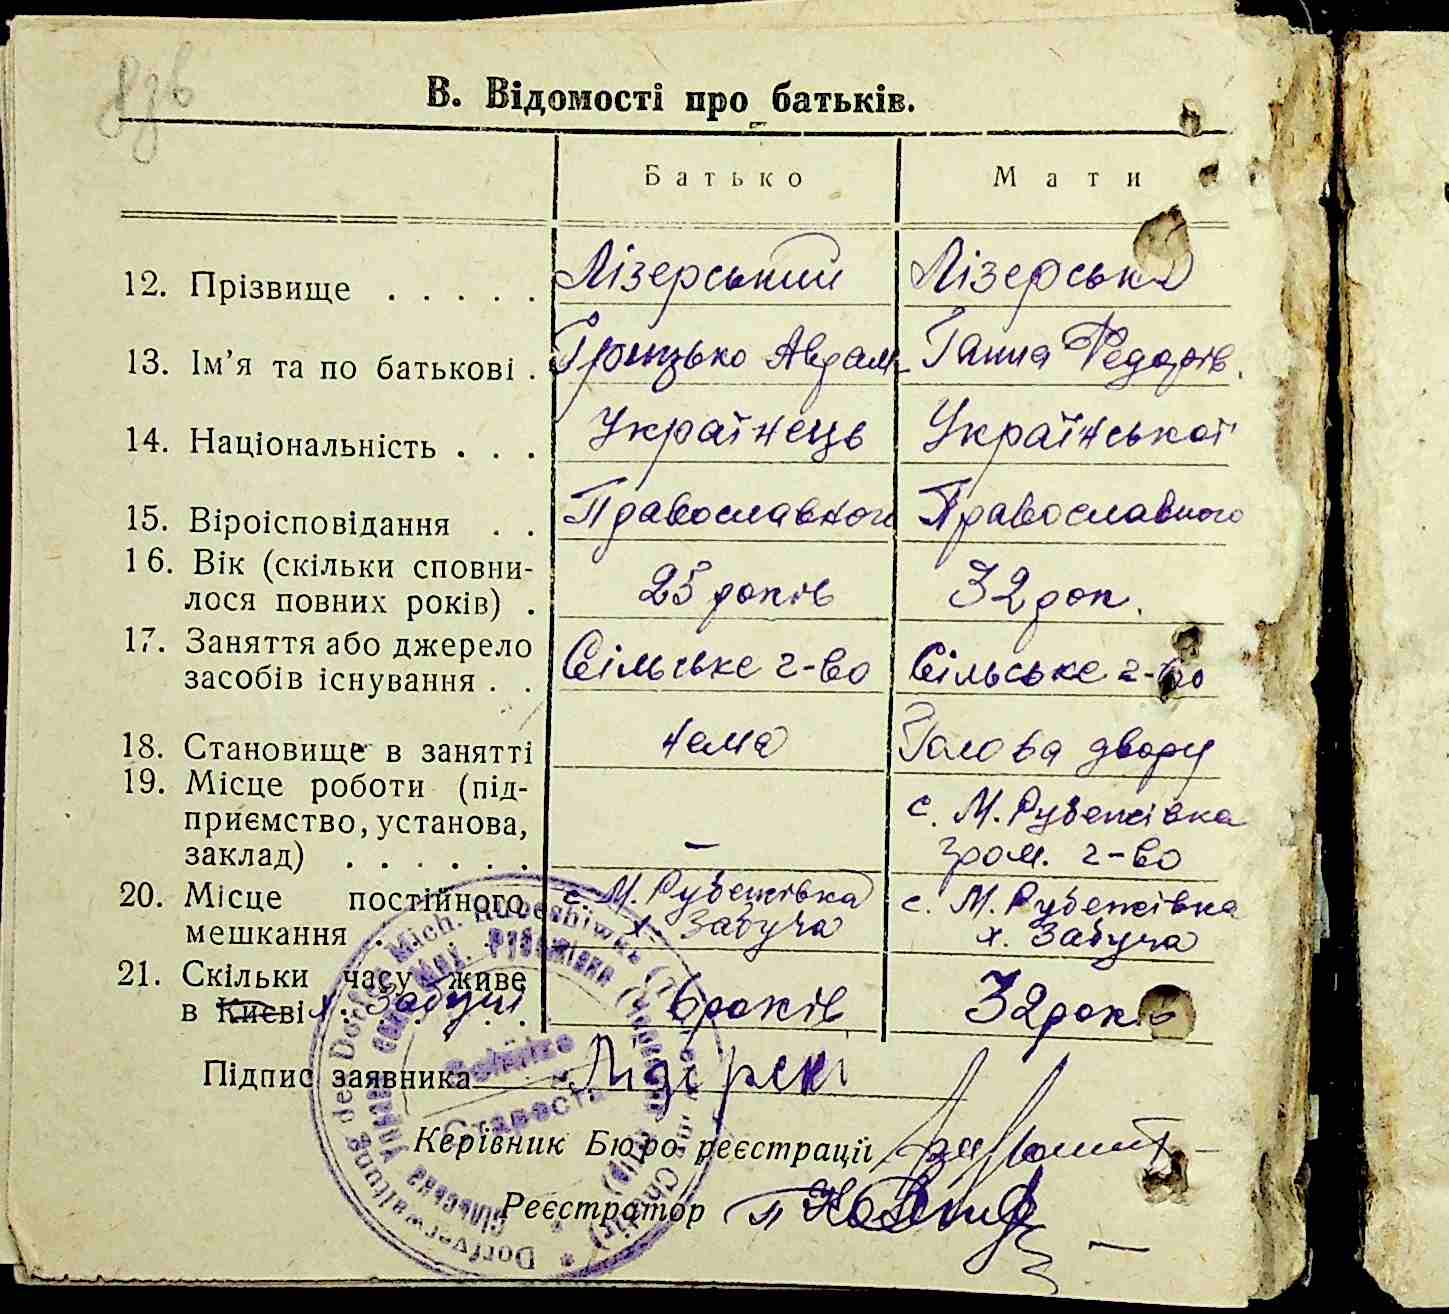 В. Відомості про батьків.
Батько Мати
12. Прізвище . . . . . Лізерський Лізерська
13. Ім’я та по батькові . Грицько Авдам- Ганна Федорів.
14. Національність . . . Українець Української
15. Віроісповідання . . Православного Православного
16. Вік (скільки сповни-
лося повних років) . 25 років 32 рок.
17. Заняття або джерело
засобів існування . . Сільське г-во Сільське г-во
18. Становище в занятті нема Голова двору
19. Місце роботи (під-
приємство, установа,
заклад) . . . . . . — с. М. Рубежівка
гром. г-во
20. Місце постійного
мешкання . . . . с. М. Рубежівка
х. Забуча с. М. Рубежівка
х. Забуча
21. Скільки часу живе
в Києві х. Забучі 6 років 32 років
Підпис заявника
Керівник Бюро реєстрації
Реєстратор
Dorfverwaltung des Dorfes Mich. Rubeshiwka
Сільська Управа Рубежівка
Schulze
Староста